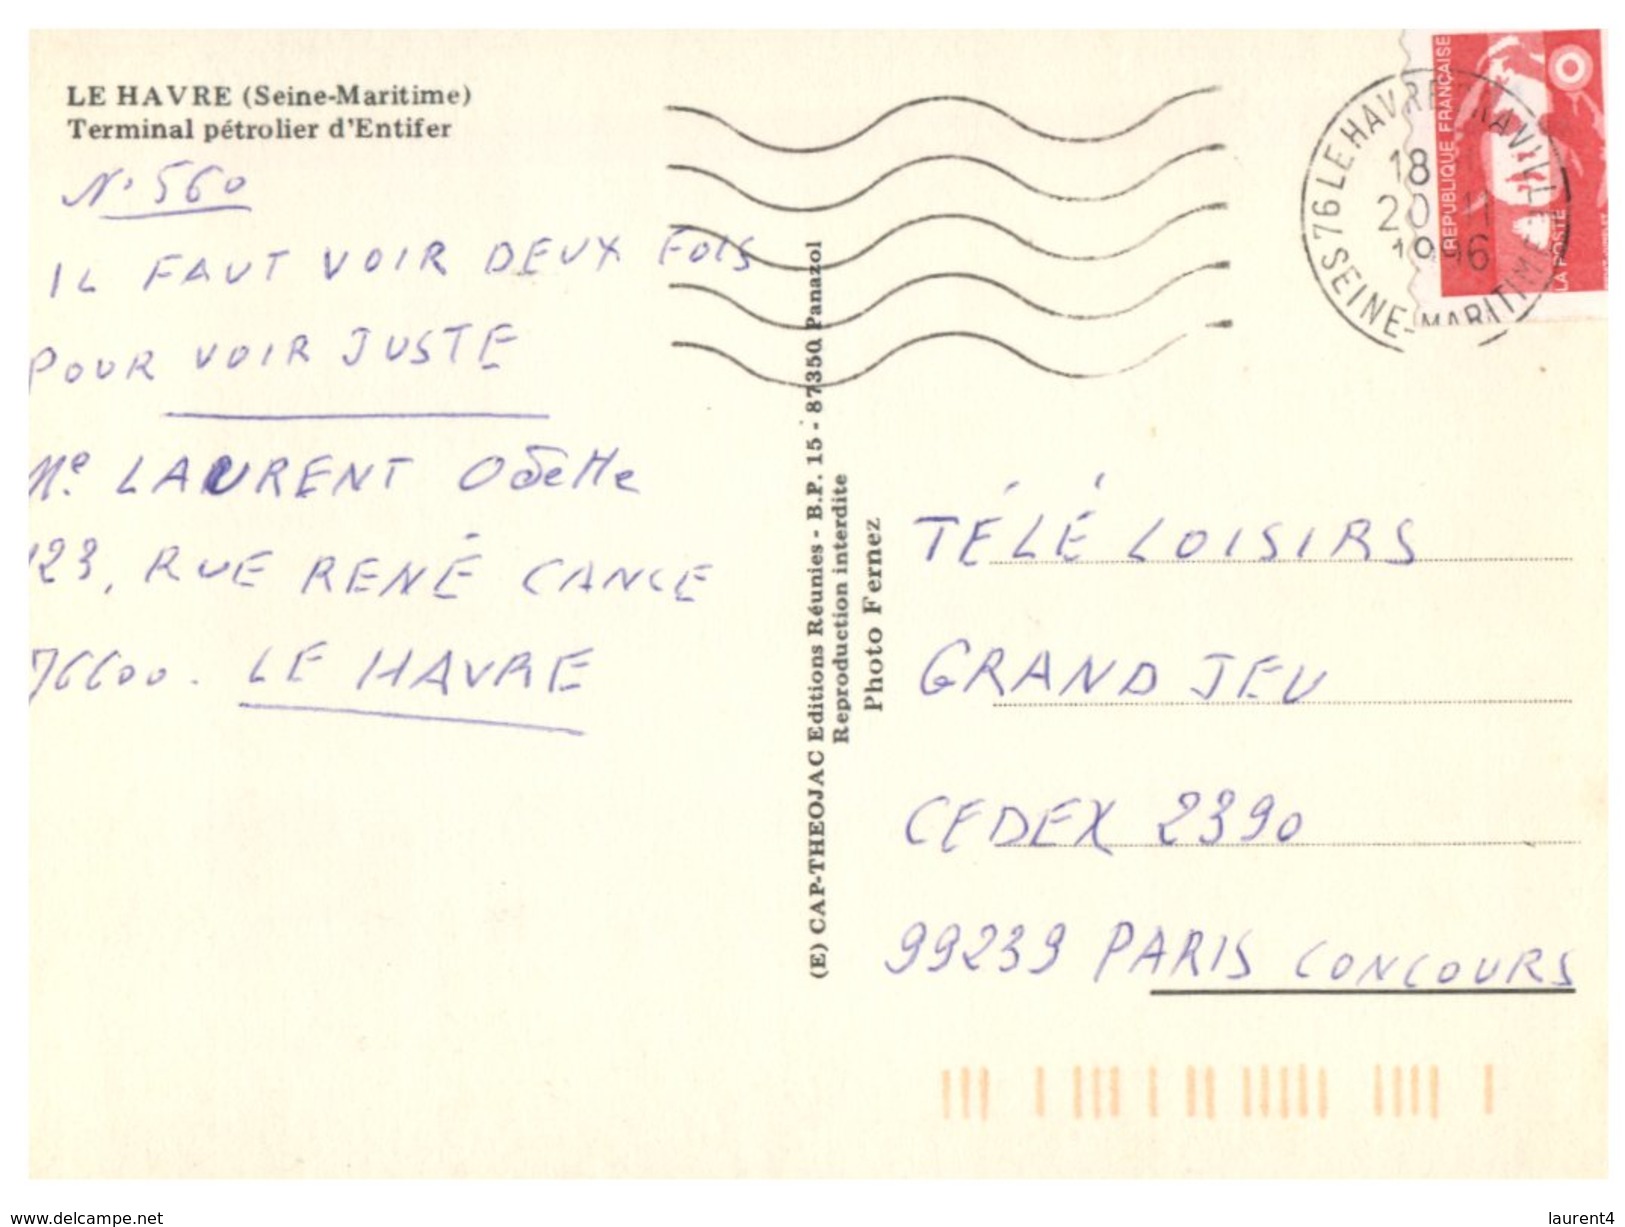 LE HAVRE (Seine-Maritime)
Terminal pétrolier d'Entifer
N. 560
IL FAUT VOIR DEUX FOIS
POUR VOIR JUSTE
Me LAURENT Odette
123, RUE RENÉ CANCE
76600. LE HAVRE
(E) CAP-THEOJAC Editions Réunies - B.P. 15 - 87350 Panazol
Reproduction interdite
Photo Fernez
76 LE HAVRE GRAVILLE
18
20 11
1996
SEINE-MARITIME
REPUBLIQUE FRANÇAISE
LA POSTE
TÉLÉ LOISIRS
GRAND JEU
CEDEX 2390
99239 PARIS CONCOURS
www.delcampe.net
laurent4